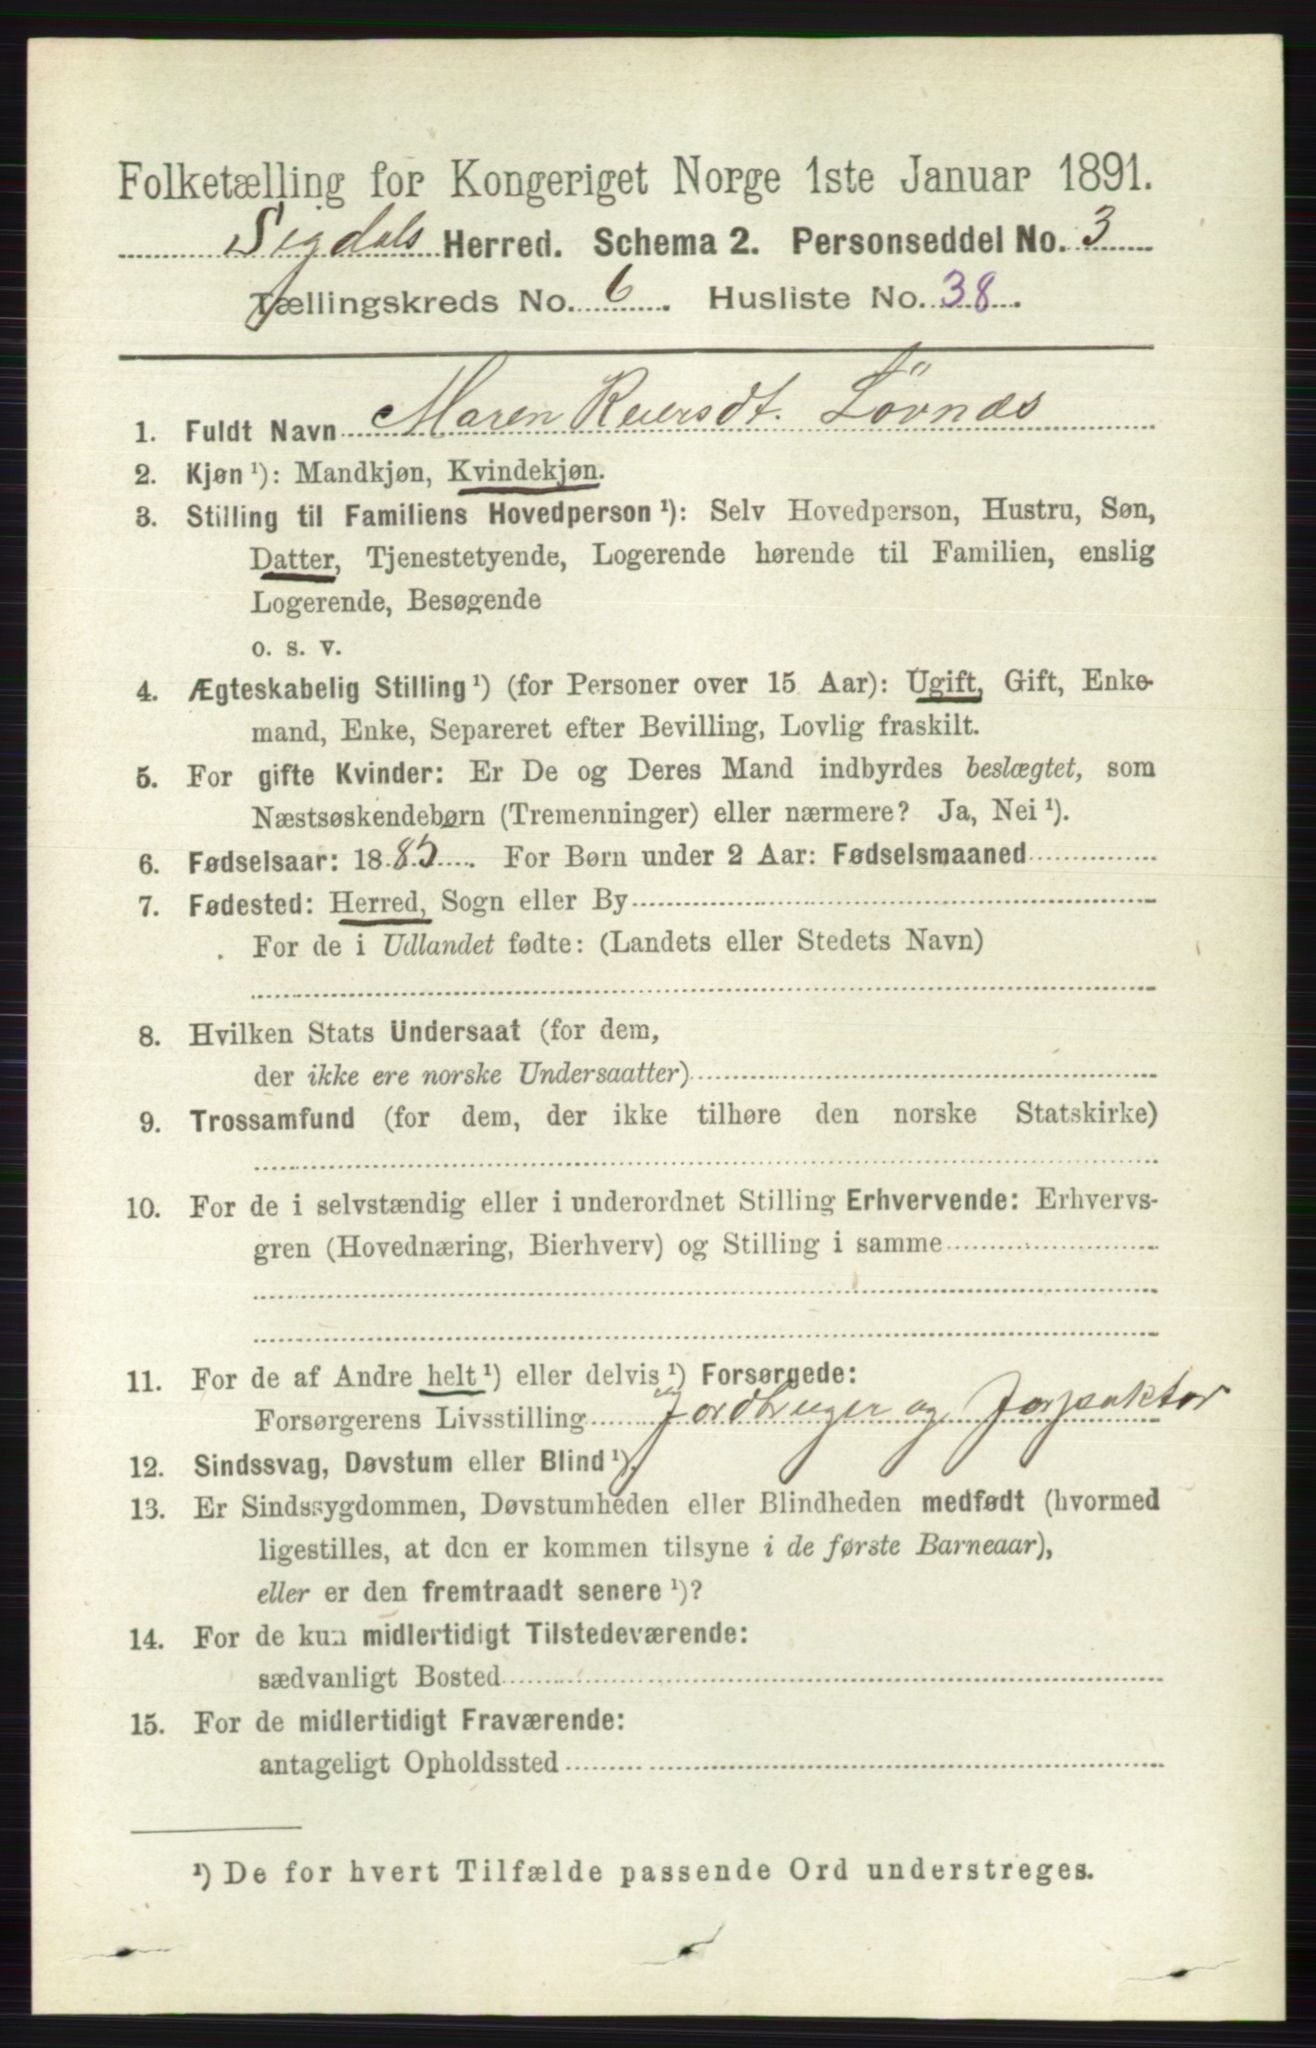 Folketælling for Kongeriget Norge 1ste Januar 1891.
Sigdals Herred. Schema 2. Personseddel No. 3
Tællingskreds No. 6. Husliste No. 38.
1. Fuldt Navn Maren Reiersdt. Lövnæs
2. Kjøn ¹): Mandkjøn, Kvindekjøn.
3. Stilling til Familiens Hovedperson ¹): Selv Hovedperson, Hustru, Søn,
Datter, Tjenestetyende, Logerende hørende til Familien, enslig
Logerende, Besøgende
o. s. v.
4. Ægteskabelig Stilling ¹) (for Personer over 15 Aar): Ugift, Gift, Enke-
mand, Enke, Separeret efter Bevilling, Lovlig fraskilt.
5. For gifte Kvinder: Er De og Deres Mand indbyrdes beslægtet, som
Næstsøskendebørn (Tremenninger) eller nærmere? Ja, Nei ¹).
6. Fødselsaar: 1885. For Børn under 2 Aar: Fødselsmaaned
7. Fødested: Herred, Sogn eller By
For de i Udlandet fødte: (Landets eller Stedets Navn)
8. Hvilken Stats Undersaat (for dem,
der ikke ere norske Undersaatter)
9. Trossamfund (for dem, der ikke tilhøre den norske Statskirke)
10. For de i selvstændig eller i underordnet Stilling Erhvervende: Erhvervs-
gren (Hovednæring, Bierhverv) og Stilling i samme
11. For de af Andre helt ¹) eller delvis ¹) Forsørgede:
Forsørgerens Livsstilling Jordbruger og Forpaktor
12. Sindssvag, Døvstum eller Blind ¹).
13. Er Sindssygdommen, Døvstumheden eller Blindheden medfødt (hvormed
ligestilles, at den er kommen tilsyne i de første Barneaar),
eller er den fremtraadt senere ¹)?
14. For de kun midlertidigt Tilstedeværende:
sædvanligt Bosted
15. For de midlertidigt Fraværende:
antageligt Opholdssted
¹) De for hvert Tilfælde passende Ord understreges.